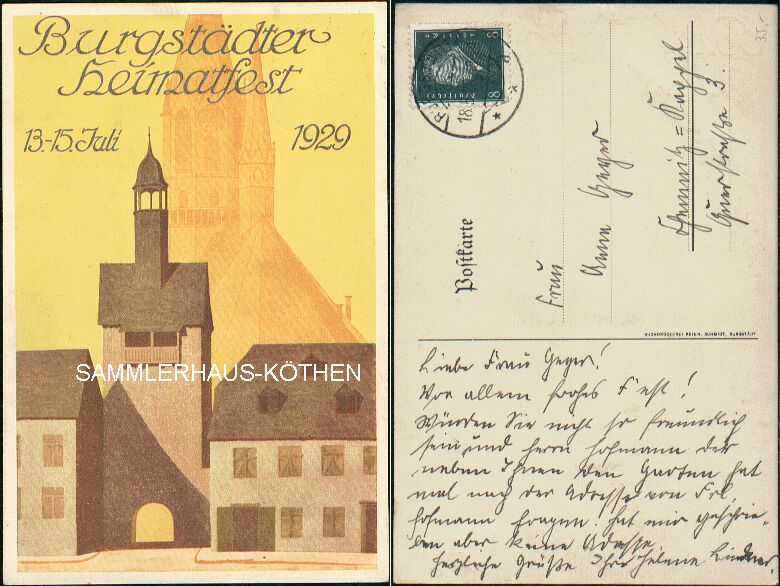 Burgstädter
Heimatfest
13.-15. Juli 1929
SAMMLERHAUS-KÖTHEN
35.-
8 8
18.
Postkarte
Frau
Anna Geyer
Chemnitz=Kappel
Querstraße 3.
BUCHDRUCKEREI REINH. SCHMIDT, BURGSTÄDT
Liebe Frau Geyer!
Vor allem frohes Fest!
Würden Sie nicht so freundlich
sein und Herrn Hofmann der
neben Ihnen den Garten hat
mal nach der Adresse von Frl.
Hofmann fragen! hat mir geschrie-
ben aber keine Adresse.
Herzliche Grüße Ihre Helene